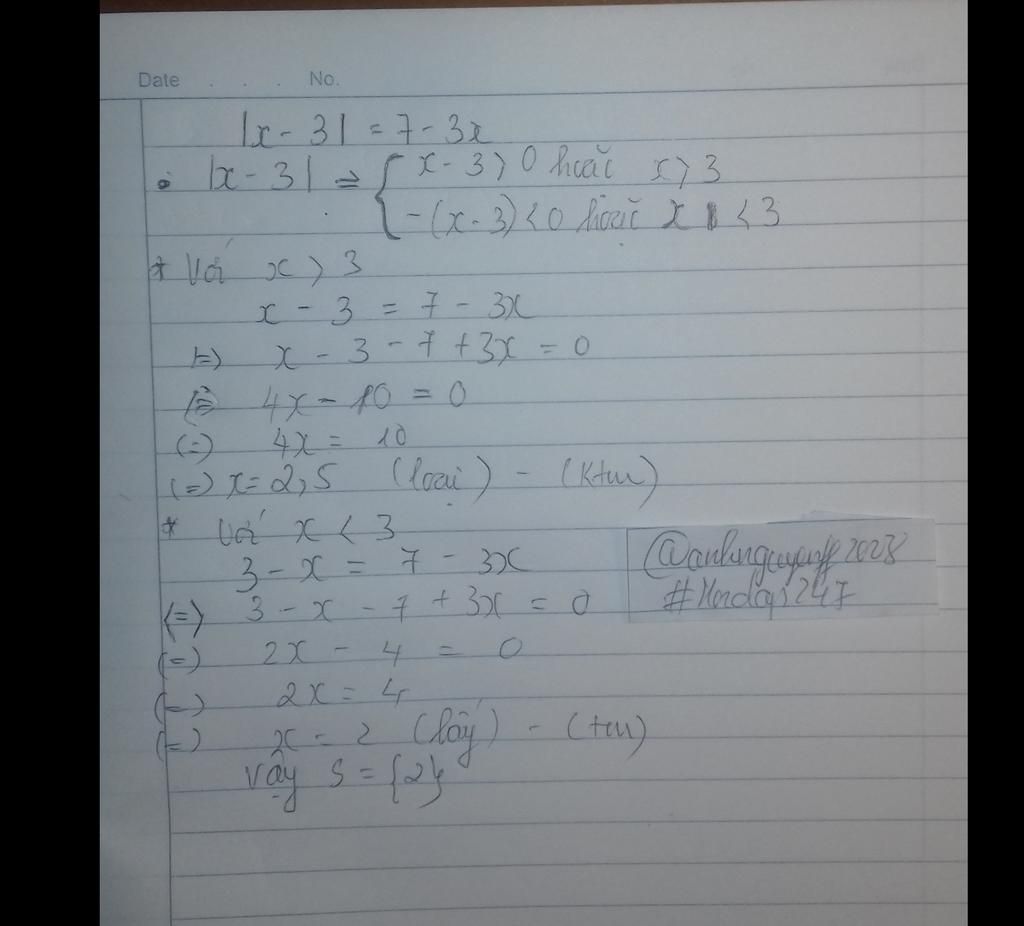 Date . . . No.
|x - 3| = 7 - 3x
• |x - 3| => { x - 3 > 0 hoặc x > 3
-(x - 3) < 0 hoặc x < 3
* Với x > 3
x - 3 = 7 - 3x
(=) x - 3 - 7 + 3x = 0
(=) 4x - 10 = 0
(=) 4x = 10
(=) x = 2,5 (loại) - (Ktm)
* Với x < 3
3 - x = 7 - 3x
(=) 3 - x - 7 + 3x = 0
(=) 2x - 4 = 0
(=) 2x = 4
(=) x = 2 (lấy) - (tm)
Vậy S = {2}